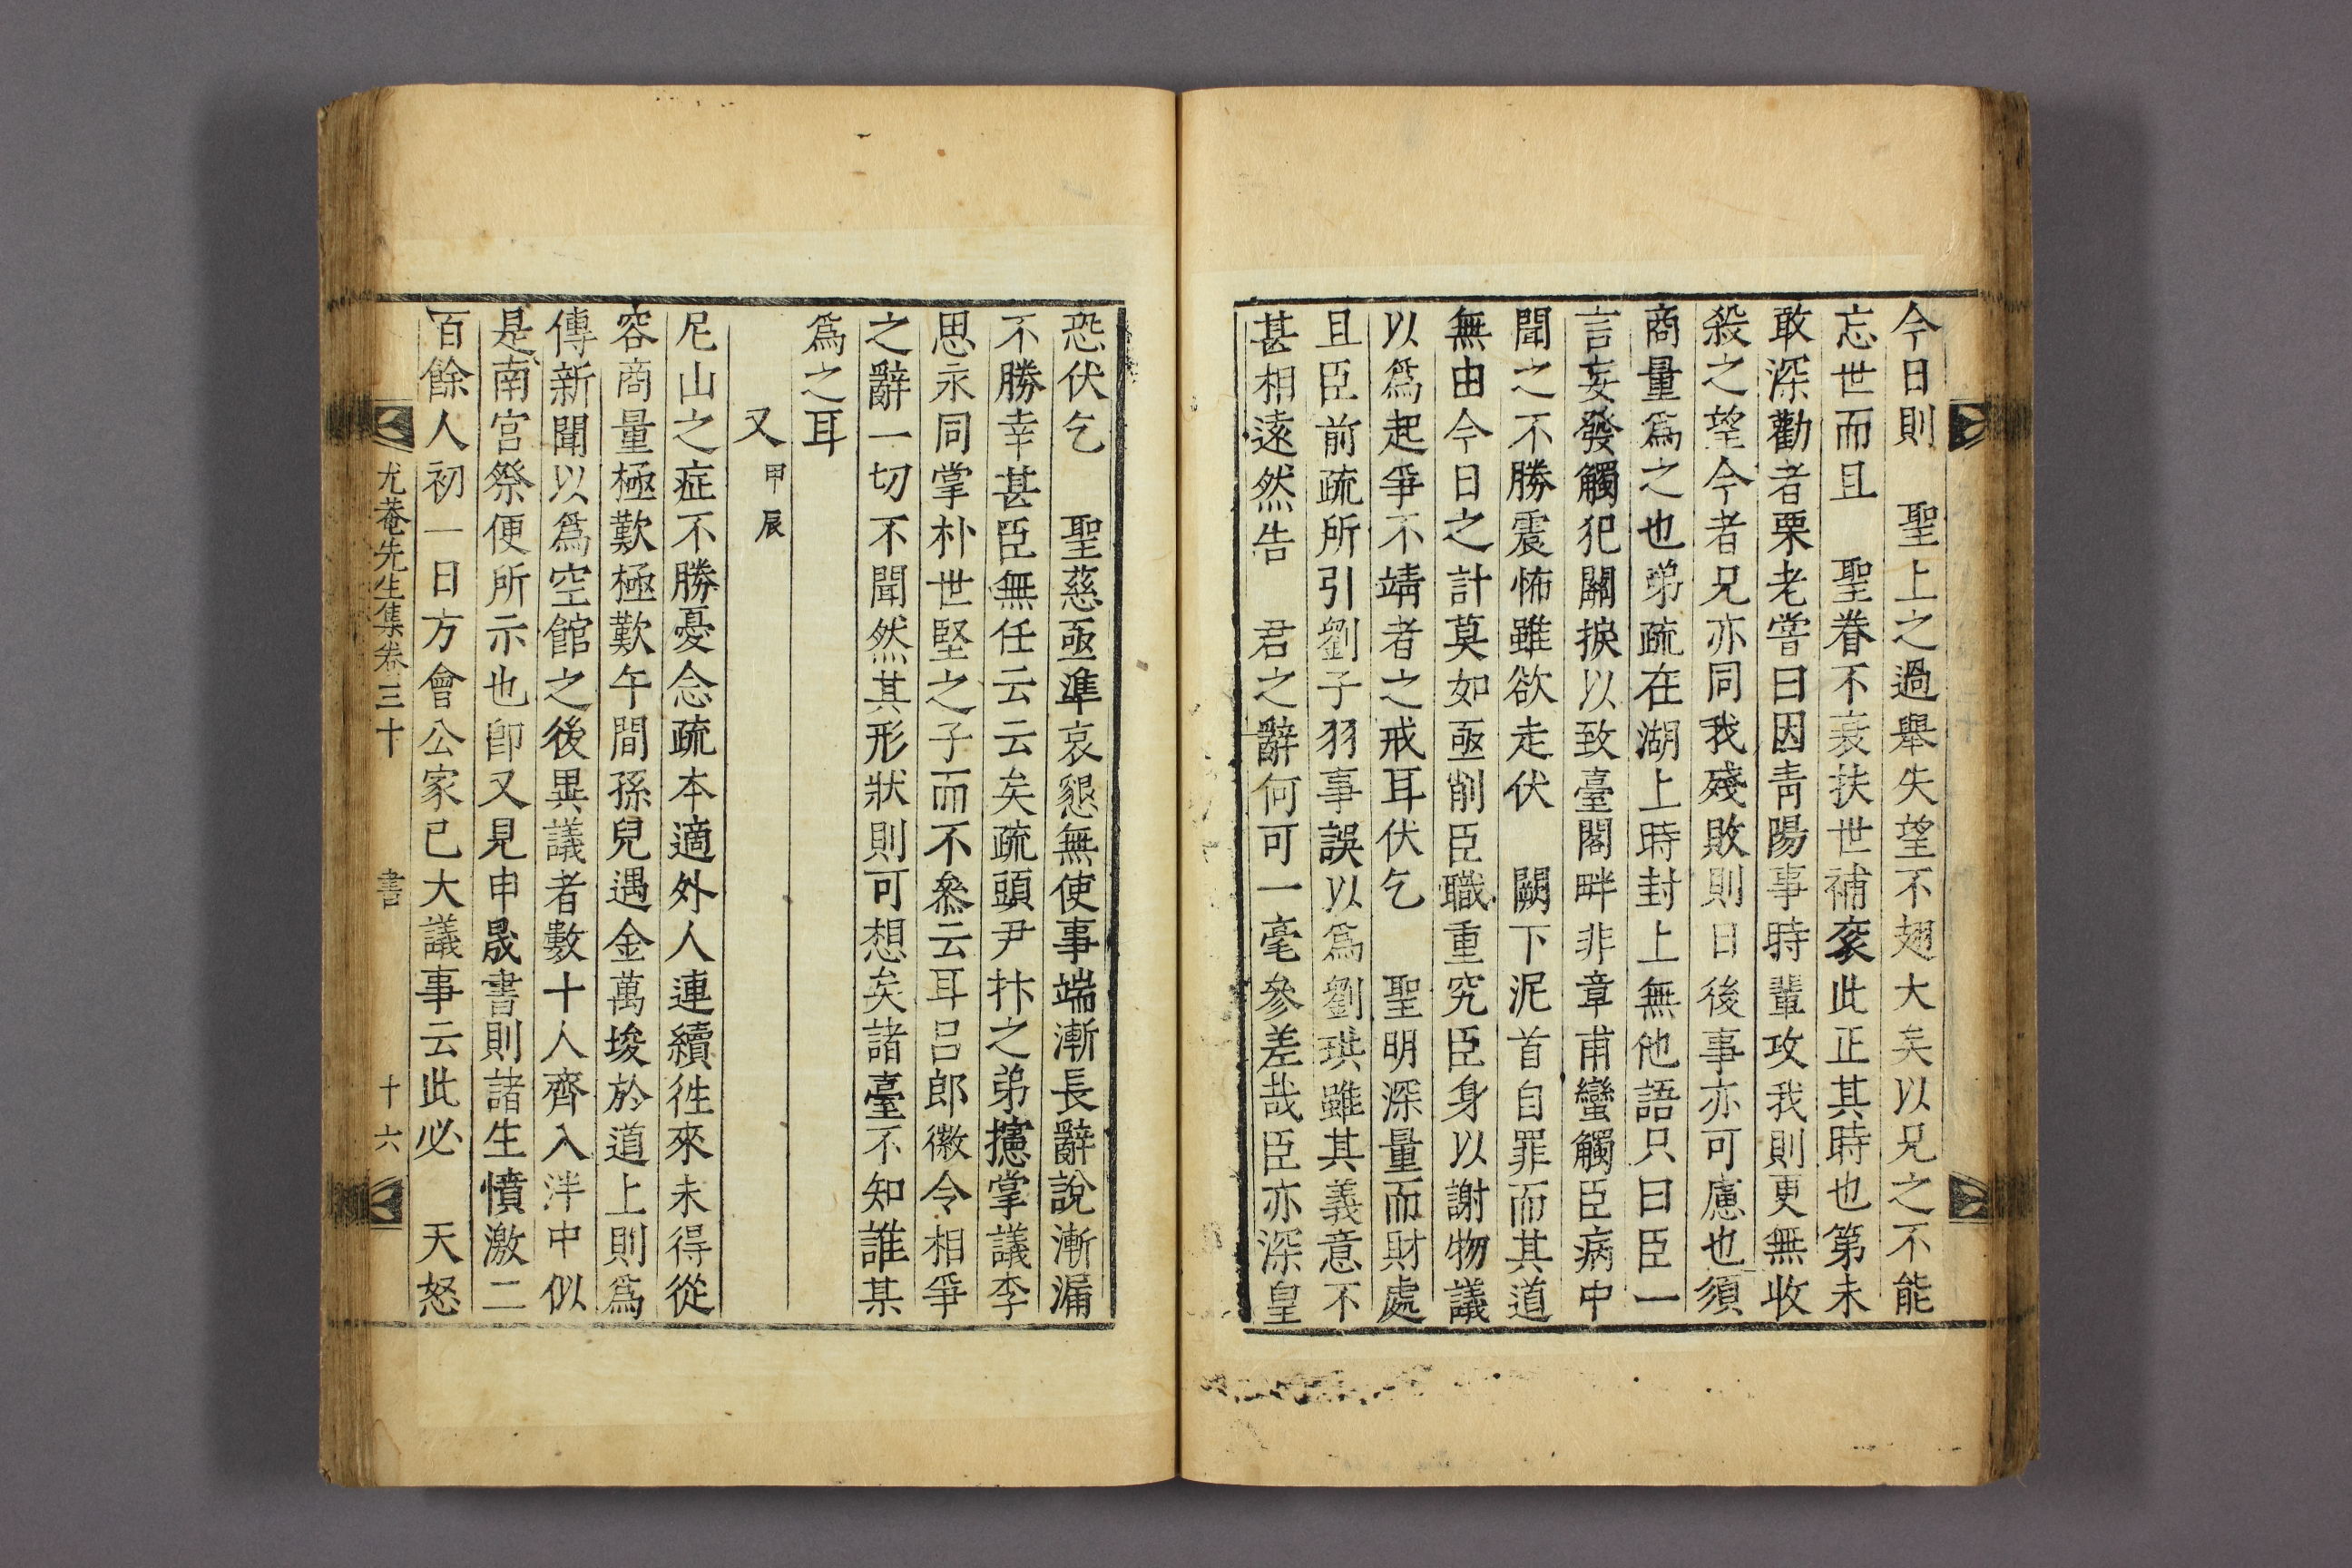 今日則　聖上之過舉失望不翅大矣以兄之不能
忘世而且　聖眷不衰扶世補衮此正其時也第未
敢深勸者栗老嘗曰因靑陽事時輩攻我則更無收
殺之望今者兄亦同我殘敗則日後事亦可慮也須
商量爲之也弟疏在湖上時封上無他語只曰臣一
言妄發觸犯關捩以致臺閣畔非章甫蠻觸臣病中
聞之不勝震怖雖欲走伏　闕下泥首自罪而其道
無由今日之計莫如亟削臣職重究臣身以謝物議
以爲起爭不靖者之戒耳伏乞　聖明深量而財處
且臣前疏所引劉子羽事誤以爲劉珙雖其義意不
甚相遠然告　君之辭何可一毫參差哉臣亦深皇
恐伏乞　聖慈亟準哀懇無使事端漸長辭說漸漏
不勝幸甚臣無任云云矣疏頭尹抃之弟攇掌議李
思永同掌朴世堅之子而不叅云耳呂郎徽令相爭
之辭一切不聞然其形狀則可想矣諸臺不知誰某
爲之耳
又甲辰
尼山之症不勝憂念疏本適外人連續徃來未得從
容商量極歎極歎午間孫兒遇金萬埈於道上則爲
傳新聞以爲空館之後異議者數十人齊入泮中似
是南宮祭便所示也卽又見申晟書則諸生憤激二
百餘人初一日方會公家已大議事云此必　天怒
尤菴先生集卷三十　書　十六